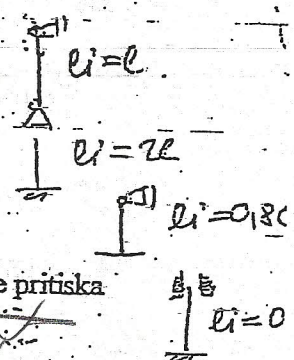 li=l
li=2l
li=0,8l
e pritiska
li=0